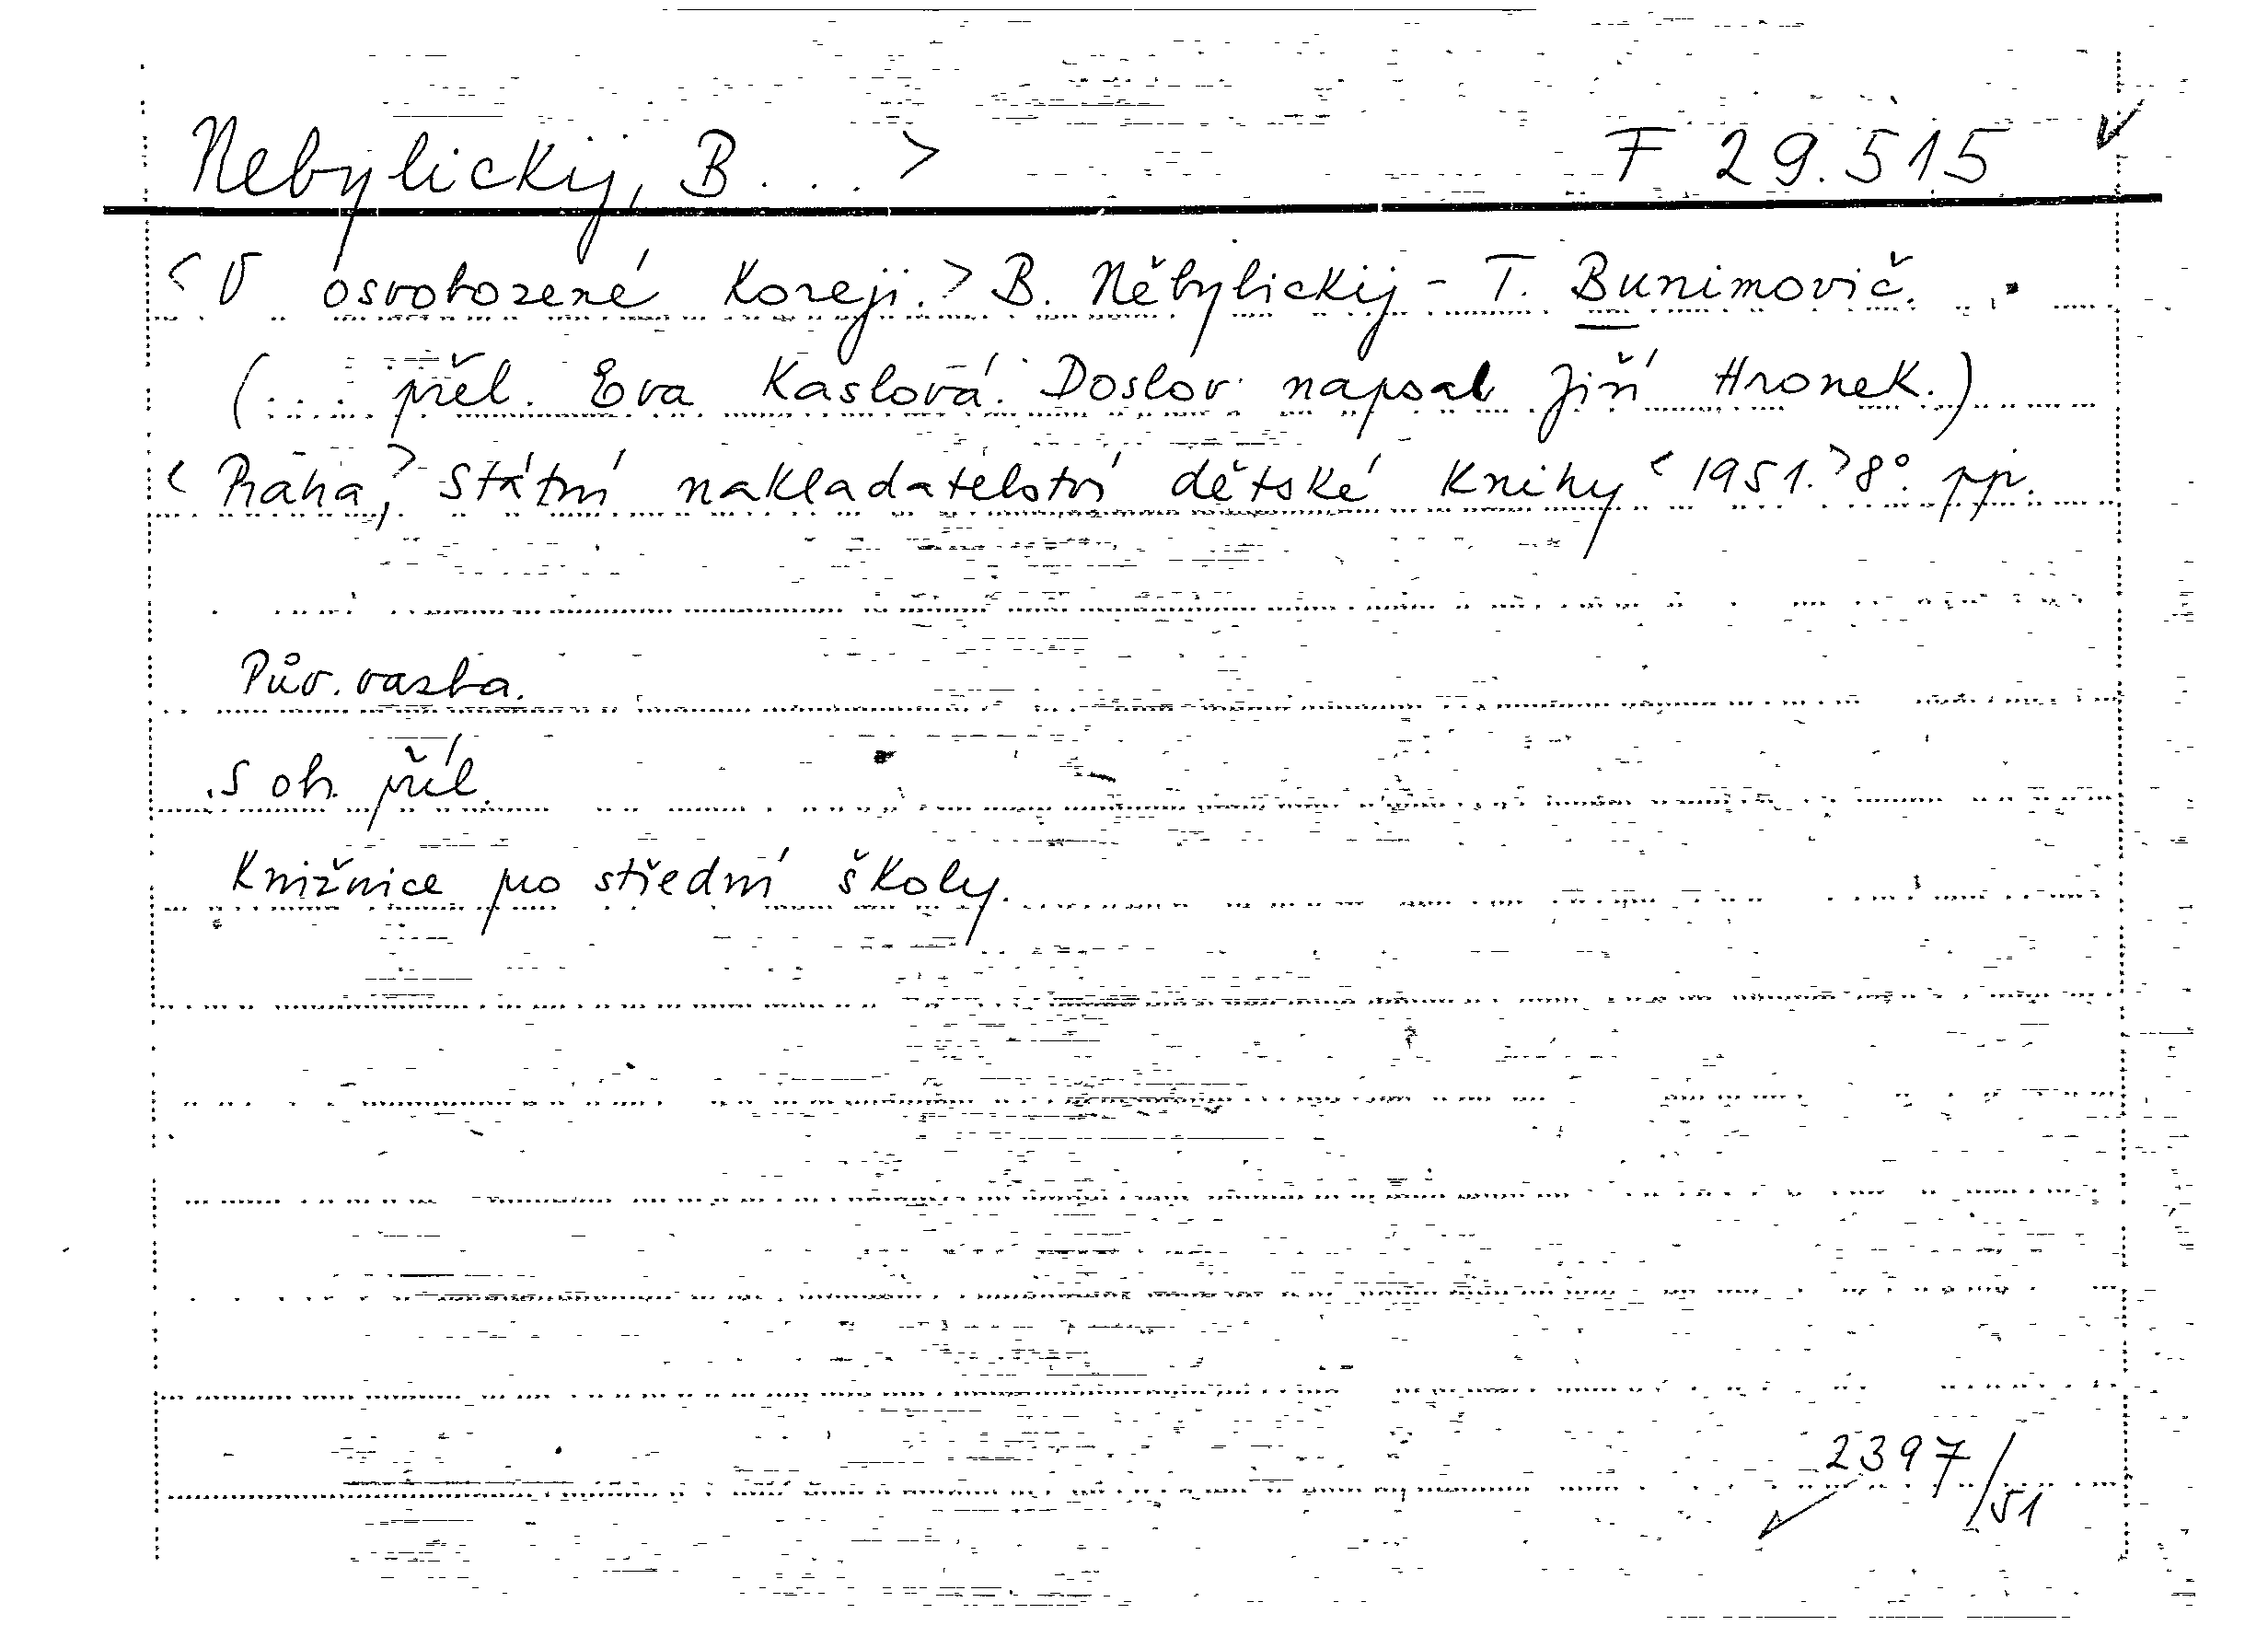 Nebylickij, B...> F 29.515
<V osvobozené Koreji.> B. Něbylickij - T. Bunimovič.
(... přel. Eva Kaslová. Doslov napsal Jiří Hronek.)
<Praha,> Státní nakladatelství dětské knihy <1951.> 8°. pp.
Pův. vazba.
S ob. příl.
Knižnice pro střední školy.
2397/51